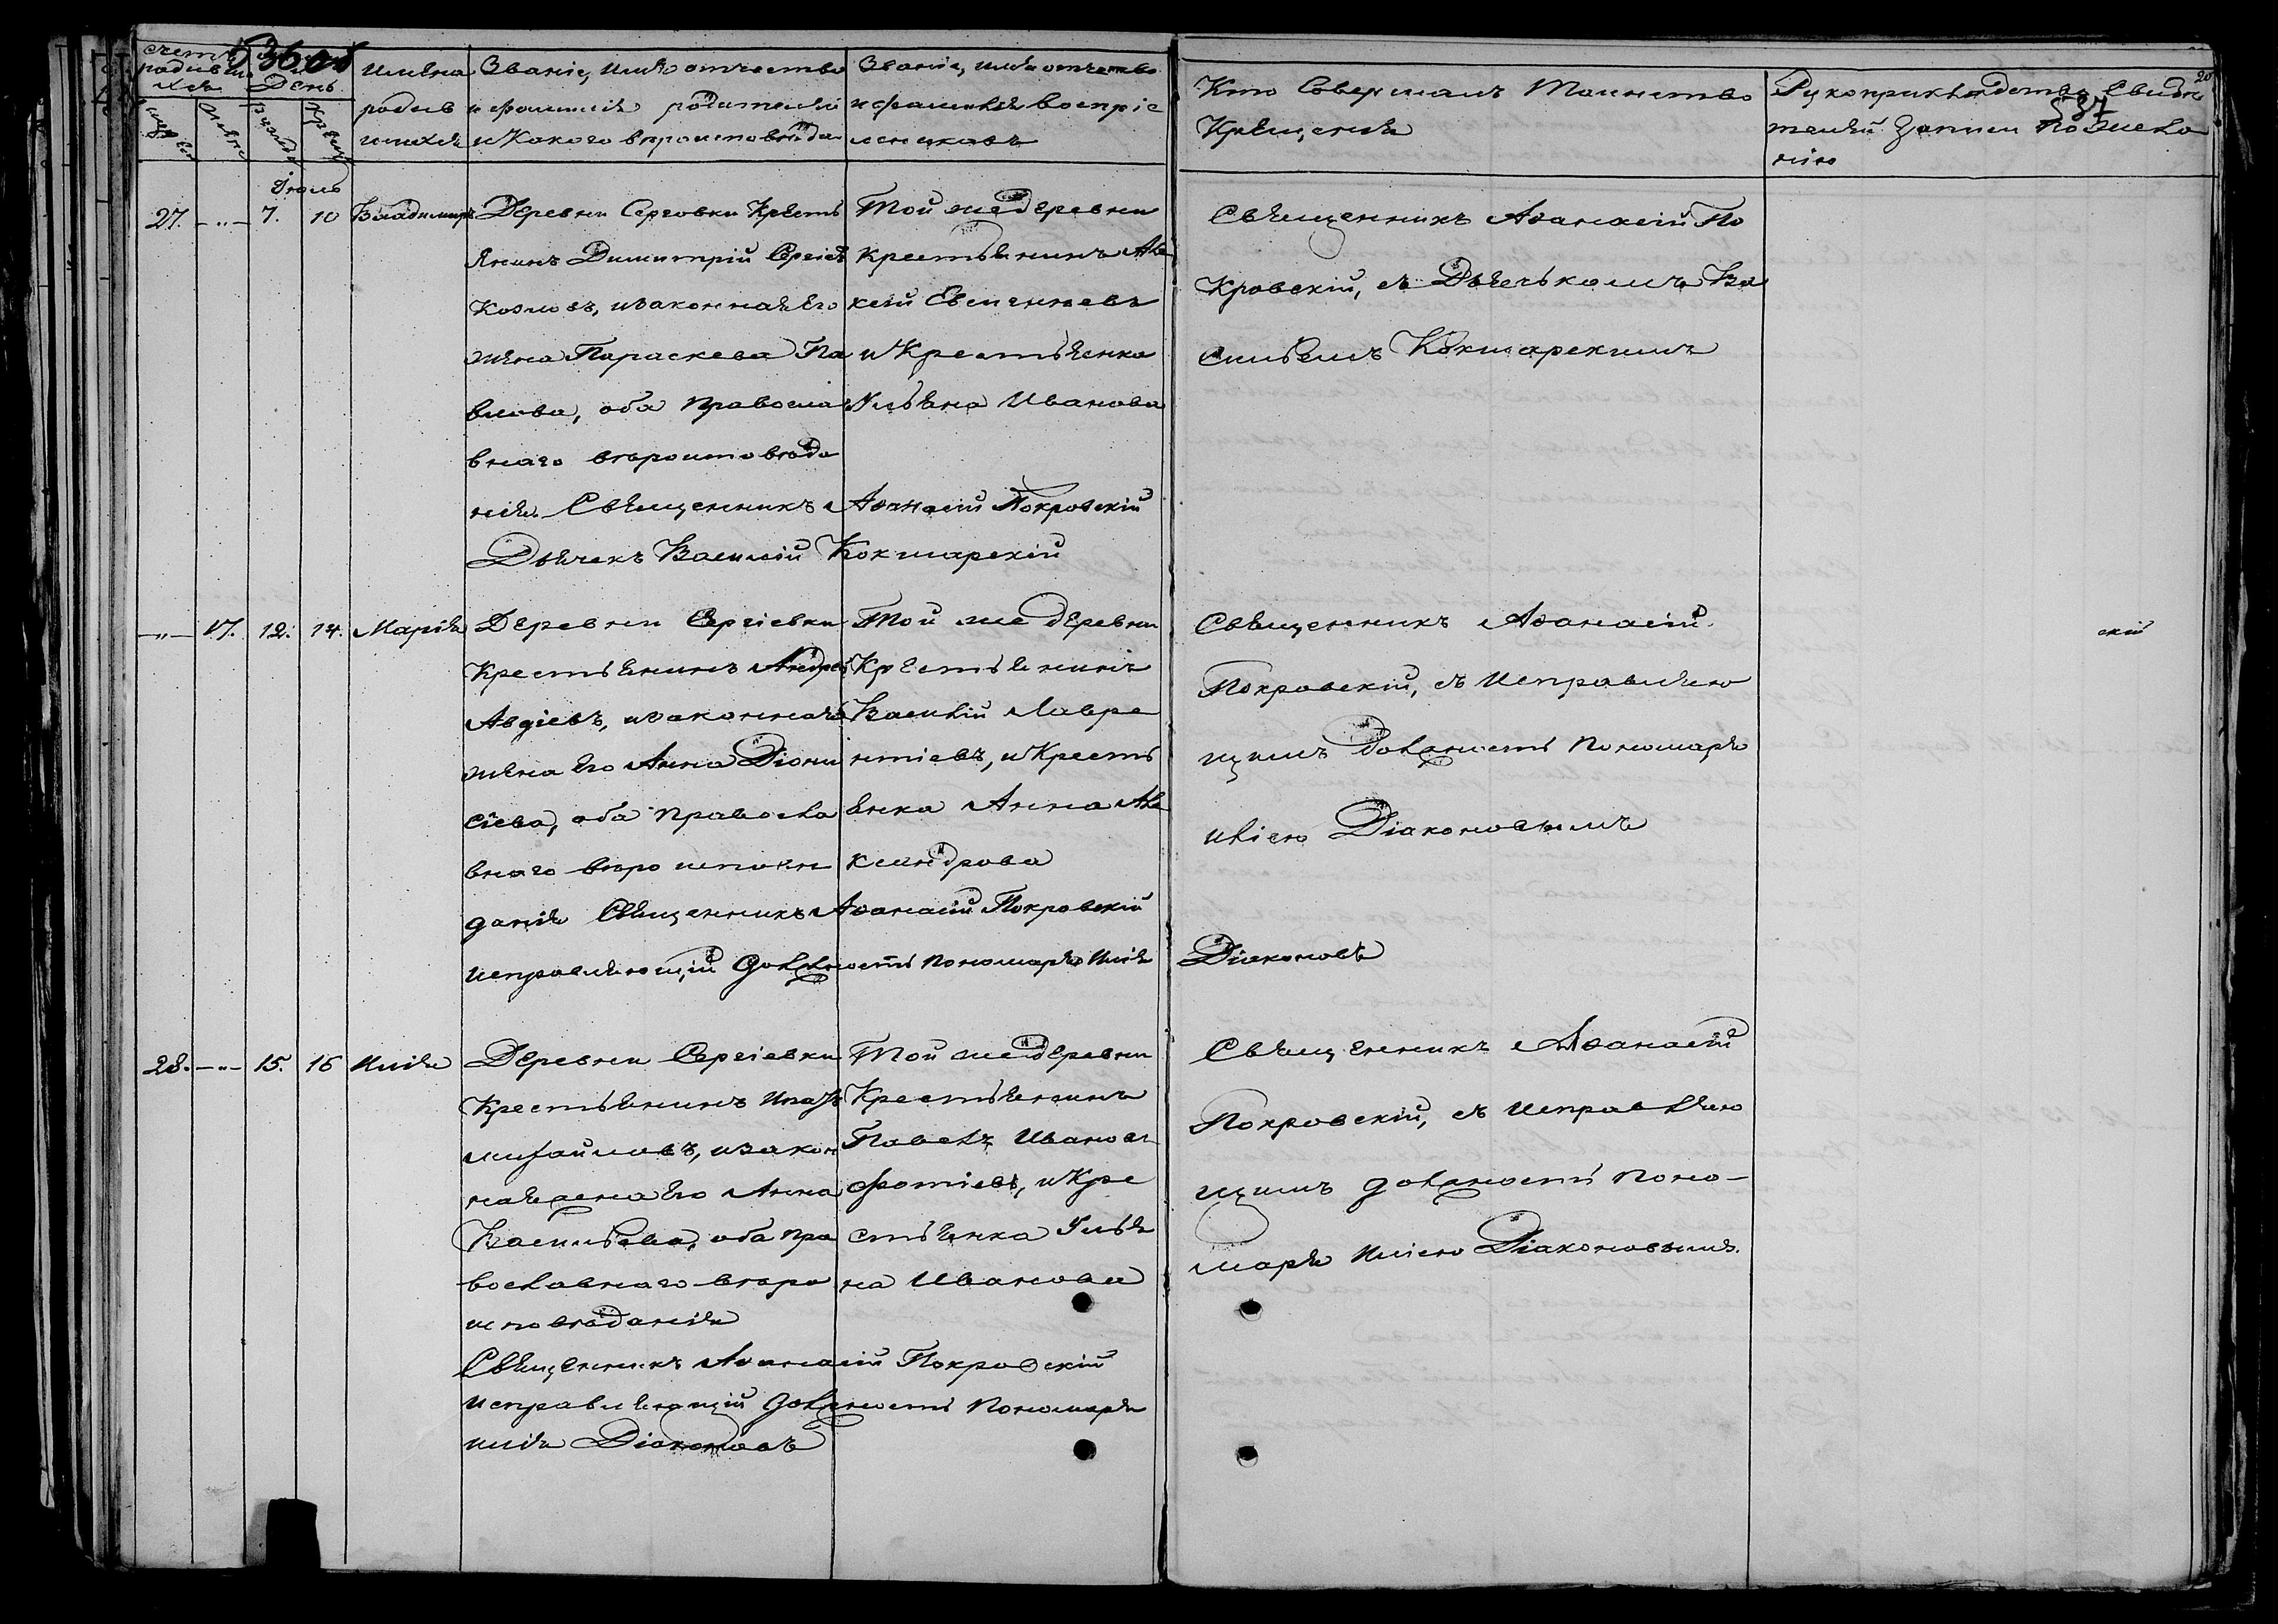 счетъ
родивших
ся
День
Мужеска
Женска
Рожденія
Крещенія
Имена
родив
шихся
Званіе, имя отчество
и фамилія родителей
и какого вероисповѣда
Званіе, имя отчество
и фамилія воспріе
мниковъ
Кто совершалъ таинство
Крещенія
20
587
Рукоприкладство свидѣ
телей записи по жела
нію
Іюль
27. -„- 7. 10 Владимиръ
Деревни Серговки Кресть
янинъ Димитрій Сергіевъ
Козловъ, и законная его
жена Параскева Па
влова, оба Правосла
внаго вѣроисповѣда
нія. Священникъ Аѳанасій Покровскій
Дьячекъ Василій Кокшарскій
Той же деревни
Крестьянинъ Але
ксѣй Евгеніевъ
и Крестьянка
Ульяна Иванова
Священникъ Аѳанасій По
кровскій, съ Дьячькомъ Ва
сильемъ Кокшарскимъ
-„- 17. 12. 14. Марія
Деревни Сергіевки
Крестьянинъ Андрей
Авдіевъ, и законная
жена его Анна Діони
сіева, оба Правосла
внаго вѣро исповѣ
данія Священникъ Аѳанасій Покровскій
исправляющій должность пономаря Илія Діаконовъ
Той же деревни
Крестьянинъ
Василій Лавре
нтіевъ, и Кресть
янка Анна Але
ксандрова
Священникъ Аѳанасій
Покровскій, съ исправляю
щимъ должность пономаря
Иліею Діаконовымъ
скій
28. -„- 15. 16 Илія
Деревни Сергіевки
Крестьянинъ
Михайловъ, и закон
ная жена его Анна
Васильева, оба пра
вославнаго вѣро
исповѣданія
Священникъ Аѳанасій Покровскій
исправляющій должность пономаря
Илія Діаконовъ
Той же деревни
Крестьянинъ
Павелъ Ивановъ
Фотіевъ, и Кре
стьянка Улья
на Иванова
Священникъ Аѳанасій
Покровскій, съ исправляю
щимъ должность поно-
маря Иліею Діаконовымъ.